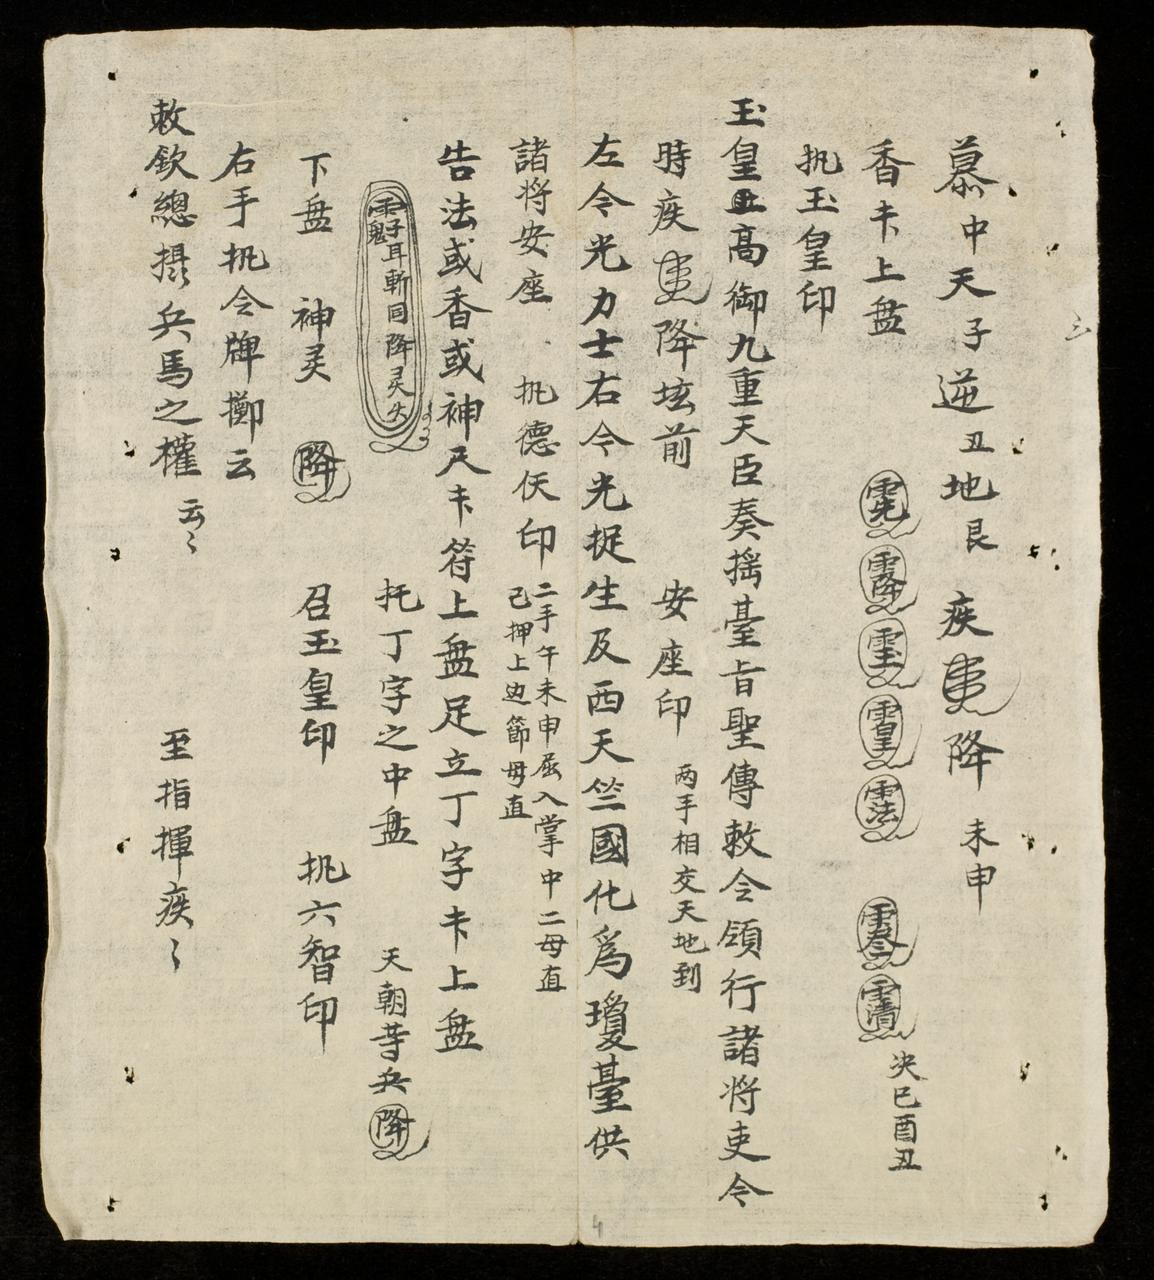 慕中天子逆丑地艮　疾　降　未申
香卡上盘　決巳酉丑
执玉皇印
玉皇　高御九重天臣奏摇臺旨聖傳敕令領行諸将吏令
時疾　降坛前　安座印　两手相交天地到
左令光力士右令光捉生及西天竺國化爲瓊臺供
諸将安座　执德仸印　二手午未申屈入掌中二母直
己押上边節母直
告法或香或神尺卡符上盘足立丁字卡上盘
耳斬同降灵　托丁字之中盘　天朝等兵降
下盘　神灵　降　召玉皇印　执六智印
右手执令牌擲云
敕欽總攝兵馬之權云々　至指揮疾々